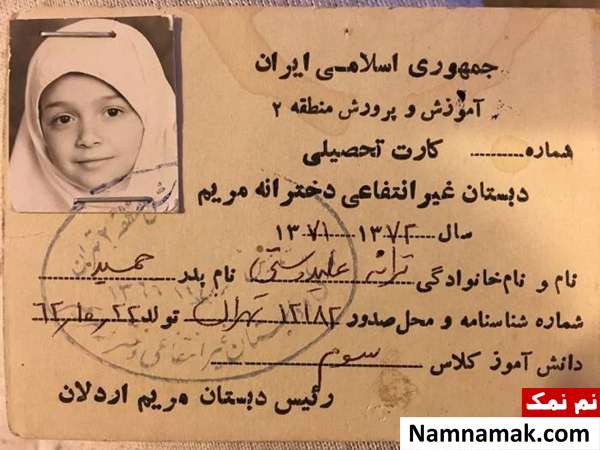 جمهوری اسلامی ایران
آموزش و پرورش منطقه ۲
شماره ........ کارت تحصیلی
دبستان غیرانتفاعی دخترانه مریم
سال ۱۳۷۲ ۱۳۷۱
نام و نام‌خانوادگی ترانه علیدوستی نام پدر حمید
شماره شناسنامه و محل صدور ۱۲۱۸۲ تهران تولد ۲۲ ۶۲
دانش آموز کلاس سوم
رئیس دبستان مریم اردلان
نم نمک
Namnamak.com